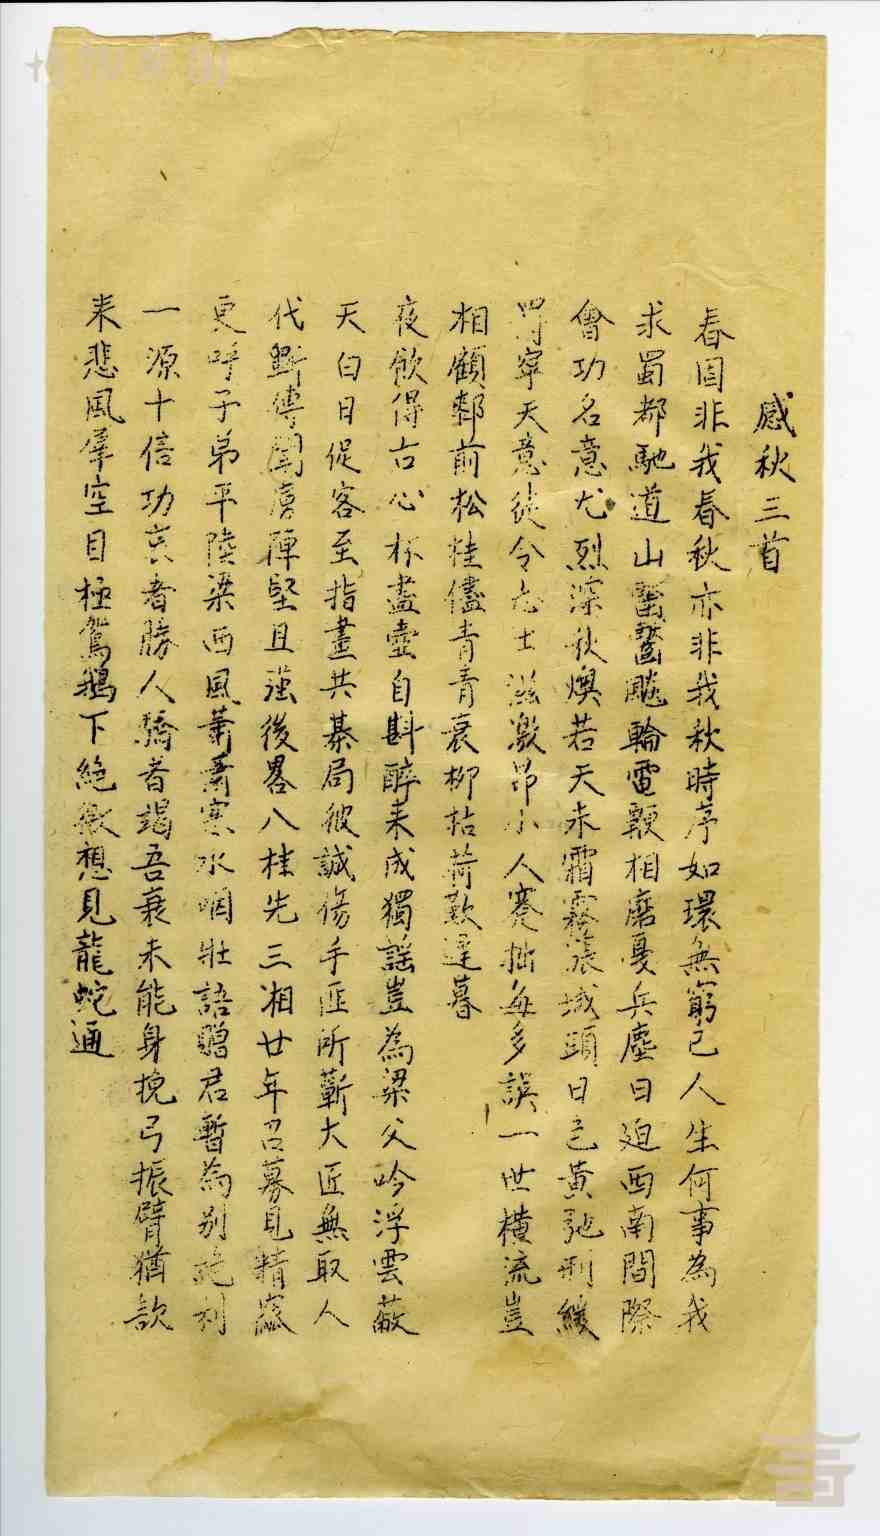 感秋三首
春固非我春秋亦非我秋時序如環無窮已人生何事為我
求蜀都馳道山齾齾飈輪電鞭相磨戛兵塵日迫西南間際
會功名意尤烈深秋燠若天未霜霧漲城頭日色黃弛刑緩
罰寧天意徒令志士滋激昂小人蹇拙每多誤一世橫流豈
相顧鄰前松桂儘青青衰柳枯荷歎遲暮
夜飲得古心杯盡壺自斟醉來成獨謠豈為梁父吟浮雲蔽
天白日促客至指畫共棊局彼誠傷手匪所蘄大匠無取人
代斲傳聞虜陣堅且強後畧八桂先三湘廿年召募見精窳
更呼子弟平陸梁西風蕭蕭寒水咽壯語贈君暫為別絕利
一源十倍功哀者勝人驕者竭吾衰未能身挽弓振臂猶欲
來悲風羣空目極鴛鵝下絕徼想見龍蛇通